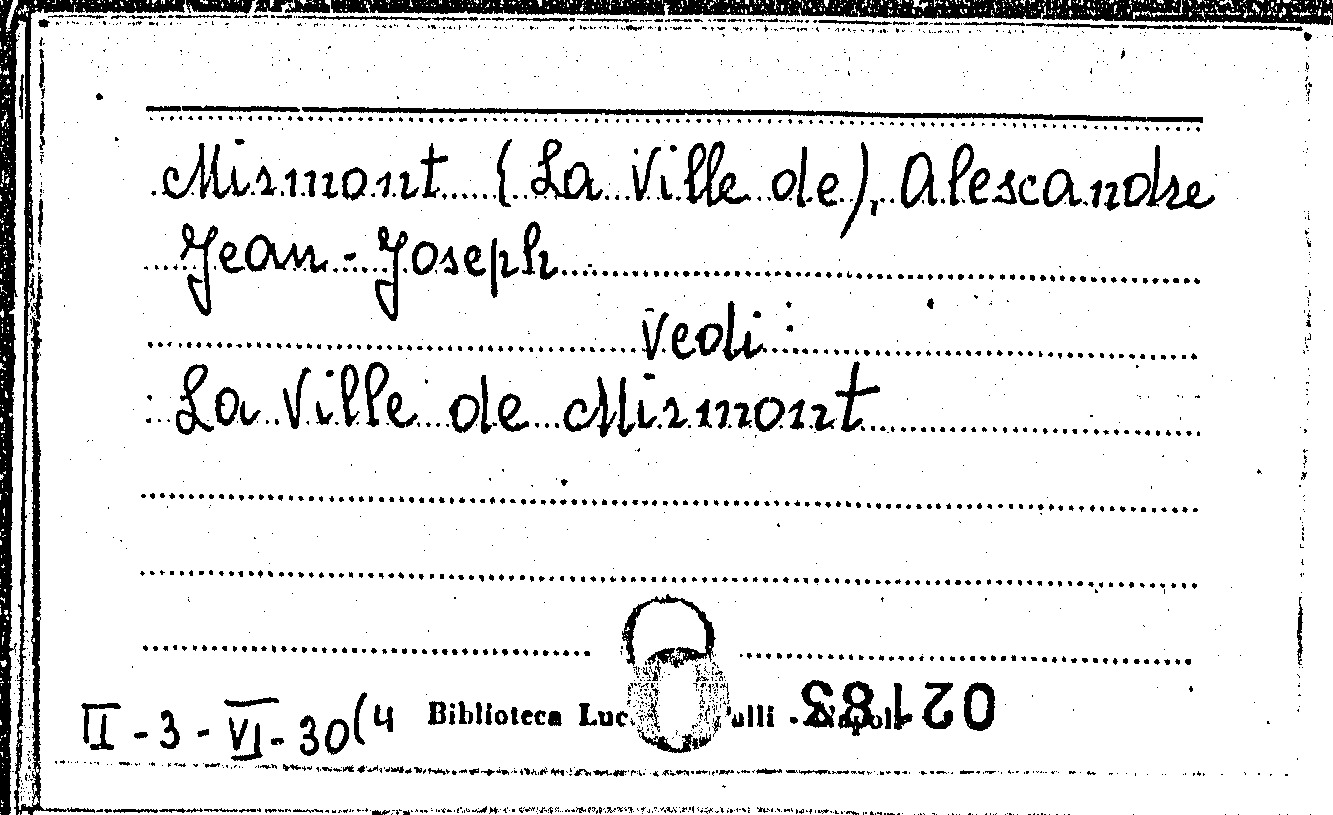 Mirmont (La Ville de), Alescandre
Jean-Joseph
vedi:
La Ville de Mirmont
II-3-VI-30(4 Biblioteca - Napoli